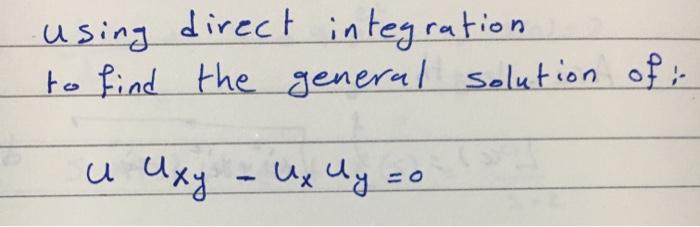 using direct integration
to find the general solution of :-
u u_xy - u_x u_y = 0